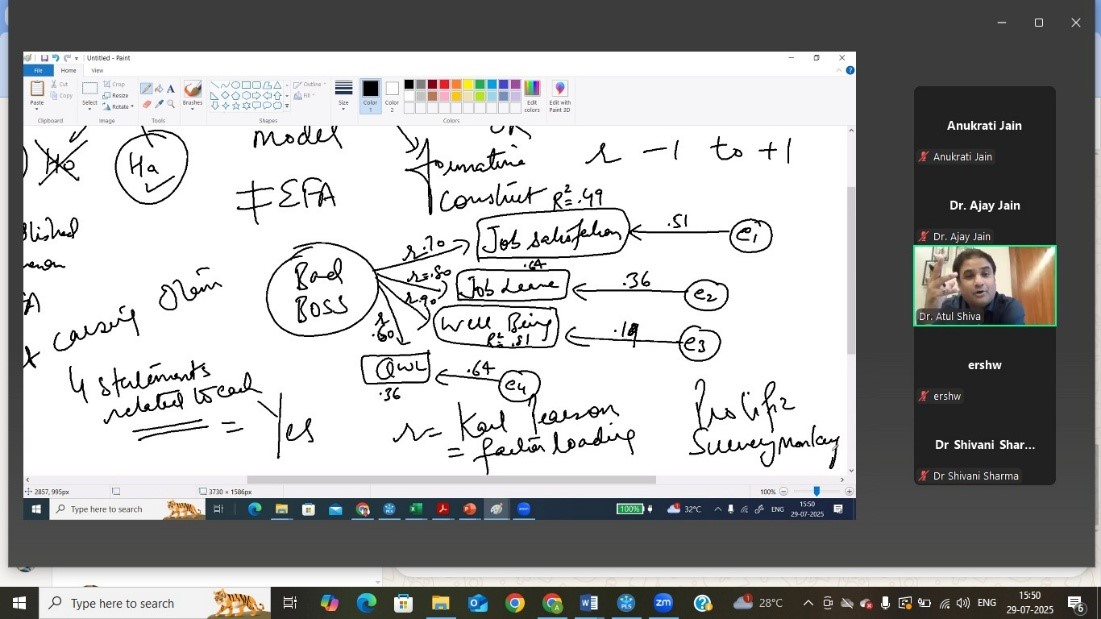 Untitled - Paint
File Home View
Paste
Cut
Copy
Clipboard
Select
Crop
Resize
Rotate
Image
Tools
Brushes
Shapes
Outline
Fill
Size
Color 1
Color 2
Colors
Edit colors
Edit with Paint 3D
Ho
Ha
model
≠ EFA
OR
formative
construct
r -1 to +1
R²=.49
Bad
BOSS
r.70
Job satisfaction
.51
e1
r=.80
.64
Job Leave
.36
e2
r.90
Well Being
R²=.81
.19
e3
r
.60
QWL
.36
.64
e4
causing
4 statements
related to each
=
Yes
r = Karl Pearson
= factor loading
Prolific
Surveymonkey
2857, 995px
3730 × 1586px
100%
Type here to search
100%
32°C
ENG
15:50
29-07-2025
Anukrati Jain
Anukrati Jain
Dr. Ajay Jain
Dr. Ajay Jain
Dr. Atul Shiva
ershw
ershw
Dr Shivani Shar...
Dr Shivani Sharma
Type here to search
28°C
ENG
15:50
29-07-2025
6